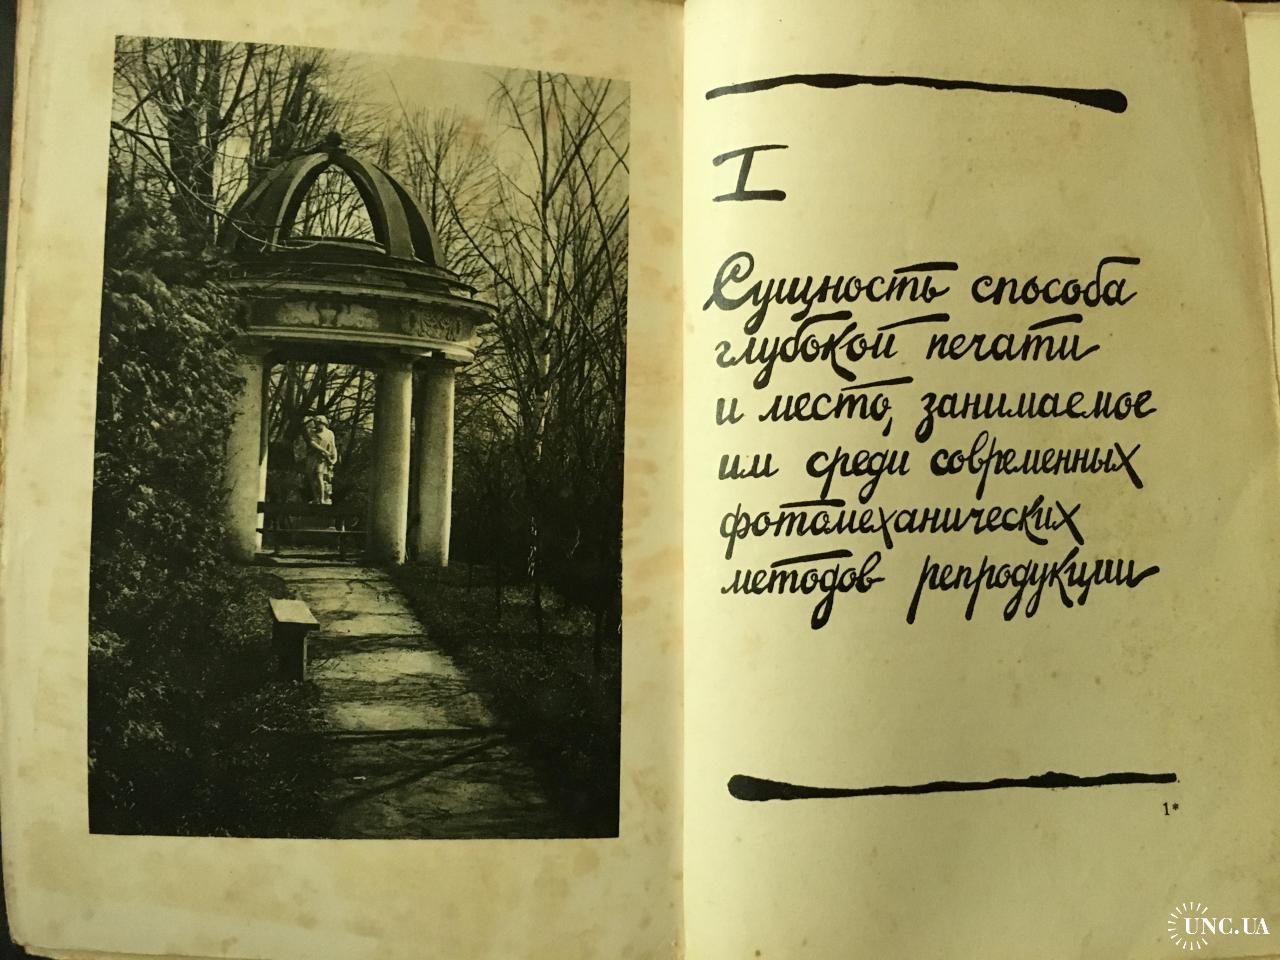 I
Сущность способа
глубокой печати
и место, занимаемое
им среди современных
фотомеханических
методов репродукции
1*
UNC.UA